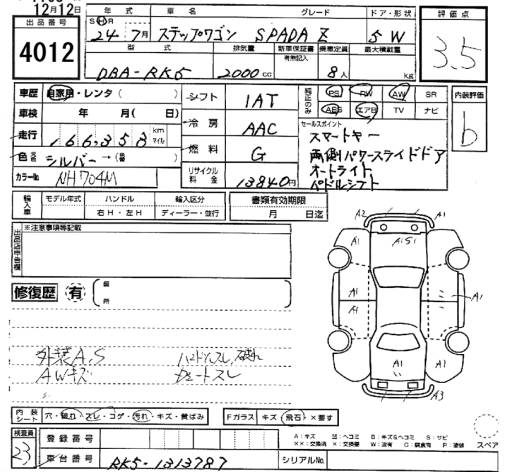 12月12日
出品番号
4012
年式 車名 グレード ドア・形状
24年7月 ステップワゴン SPADA Z 5W
型式 排気量 新車保証書 有無記入 乗車定員 最大積載量
DBA-RK5 2000cc 8人 kg
評価点
3.5
車歴 自家用・レンタ( )
車検 年 月( 日)
走行 166,358 km マイル
色 シルバー→( )
カラーNo NH704M
シフト 1AT
冷房 AAC
燃料 G
リサイクル料金 13840円
PS PW AW SR
ABS エアB TV ナビ
セールスポイント
スマートキー
両側パワースライドドア
オートライト
パドルシフト
内装評価
b
輸入車 モデル年式 ハンドル 輸入区分
右H・左H ディーラー・並行
書類有効期限
月 日迄
※注意事項等記載
修復歴 有
外装A.S ハンドルスレ,破れ
AWキズ シートスレ
A2 A1S1
A1 A1
A1 A1
A1 A1
A3
内装シート 穴・破れ・スレ・コゲ・汚れ・キズ・黄ばみ
Fガラス キズ・飛石・×要す
スペア
検査員
23
登録番号
車台番号 RK5-1313787
シリアルNo.
A:キズ U:ヘコミ B:キズ&ヘコミ S:サビ
XX:交換済 X:交換要 W:波有 C:腐食有 P:塗装